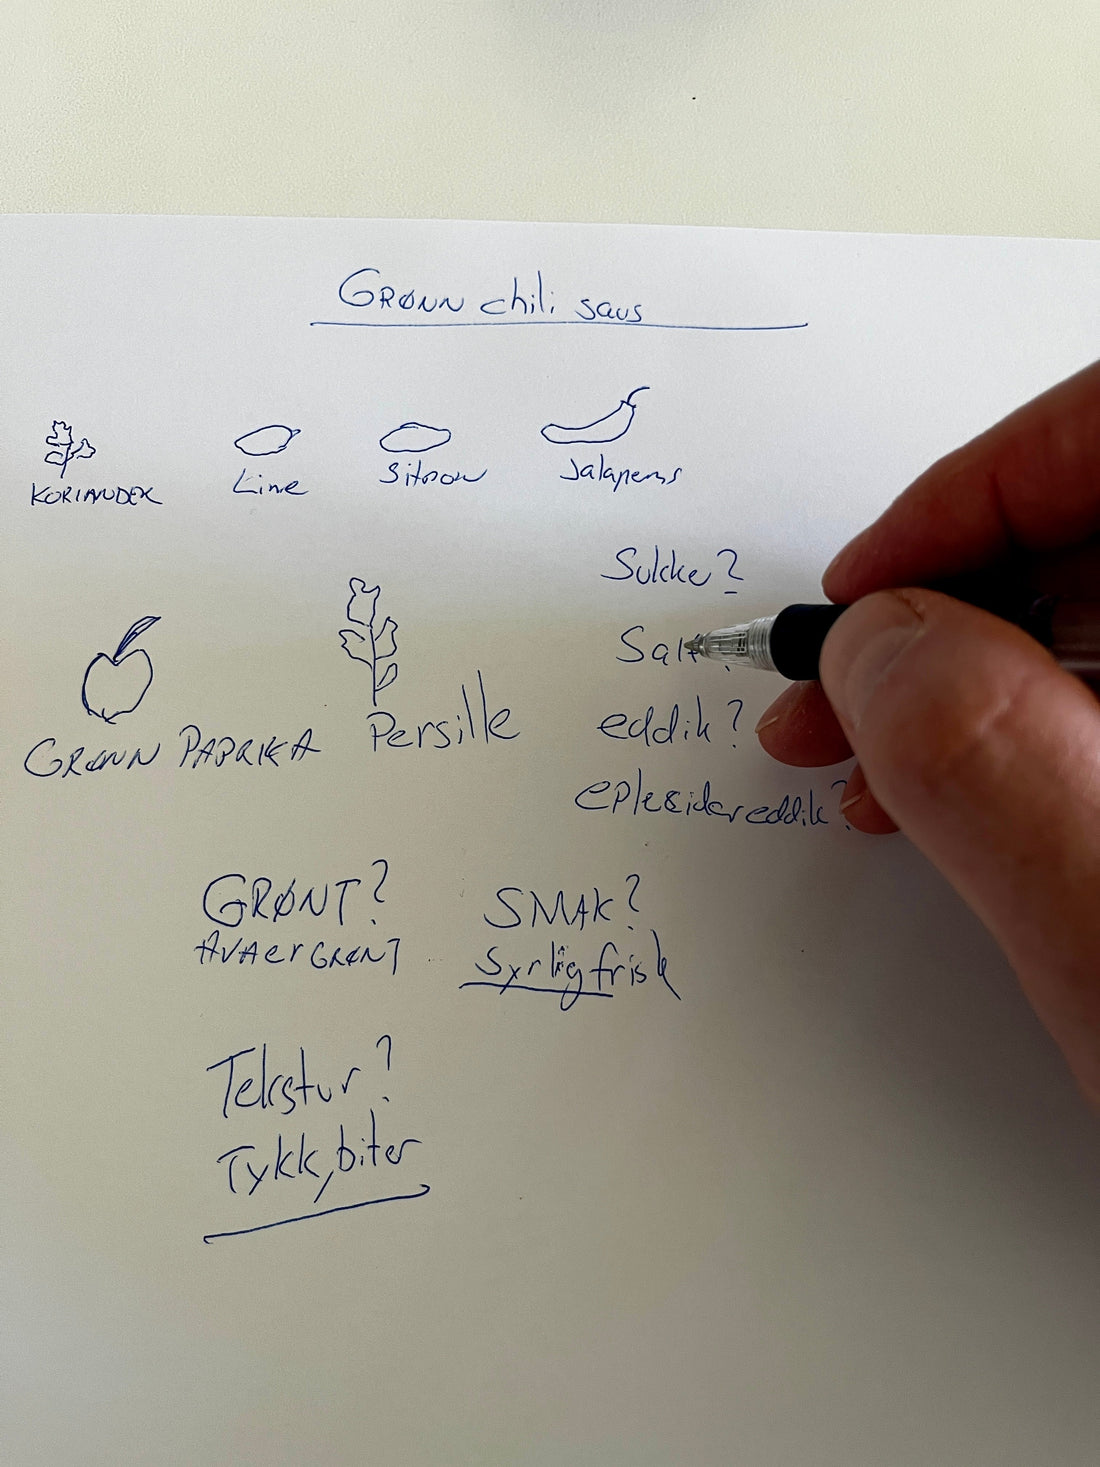 GRØNN chili saus
KORIANDER Lime Sitron Jalapenos
Sukker?
Salt?
GRØNN PAPRIKA Persille eddik?
eplesidereddik?
GRØNT? SMAK?
GRØNT Syrlig frisk
Tekstur?
Tykk, biter